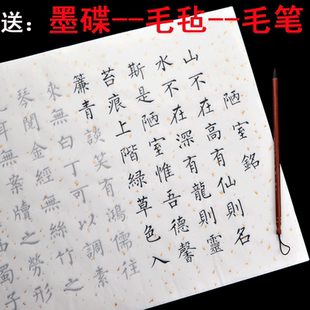 送：墨碟--毛毡--毛笔
陋室銘
山不在高有仙則名
水不在深有龍則靈
斯是陋室惟吾德馨
苔痕上階綠草色入
簾青談笑有鴻儒往
來無白丁可以調素
琴閱金經無絲竹之
耳無案牘之勞形
蜀子